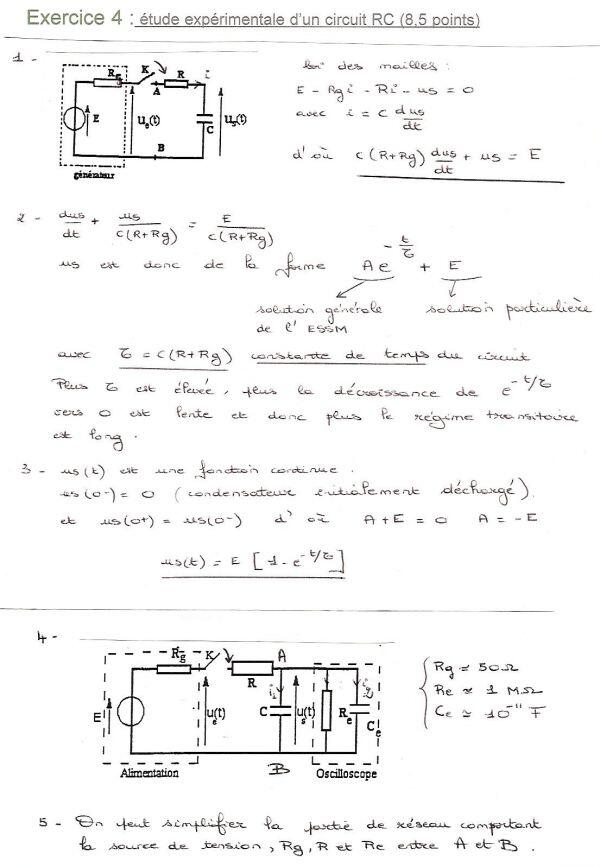 Exercice 4 : étude expérimentale d'un circuit RC (8,5 points)
1 -
Rg K R i
A
E ue(t) C us(t)
B
générateur
loi des mailles :
E - Rg i - Ri - us = 0
avec i = C dus/dt
d'où C(R+Rg) dus/dt + us = E
2 - dus/dt + us/C(R+Rg) = E/C(R+Rg)
us est donc de la forme A e^-t/τ + E
solution générale de l'ESSM
solution particulière
avec τ = C(R+Rg) constante de temps du circuit
Plus τ est élevée, plus la décroissance de e^-t/τ
vers 0 est lente et donc plus le régime transitoire
est long.
3 - us(t) est une fonction continue.
us(0-) = 0 (condensateur initialement déchargé)
et us(0+) = us(0-) d'où A+E = 0 A = -E
us(t) = E [1 - e^-t/τ]
4 -
Rg K A
R i1 i2
E ue(t) C us(t) Re Ce
B
Alimentation Oscilloscope
Rg ≃ 50 Ω
Re ≃ 1 MΩ
Ce ≃ 10^-11 F
5 - On peut simplifier la partie de réseau comportant
la source de tension, Rg, R et Re entre A et B.